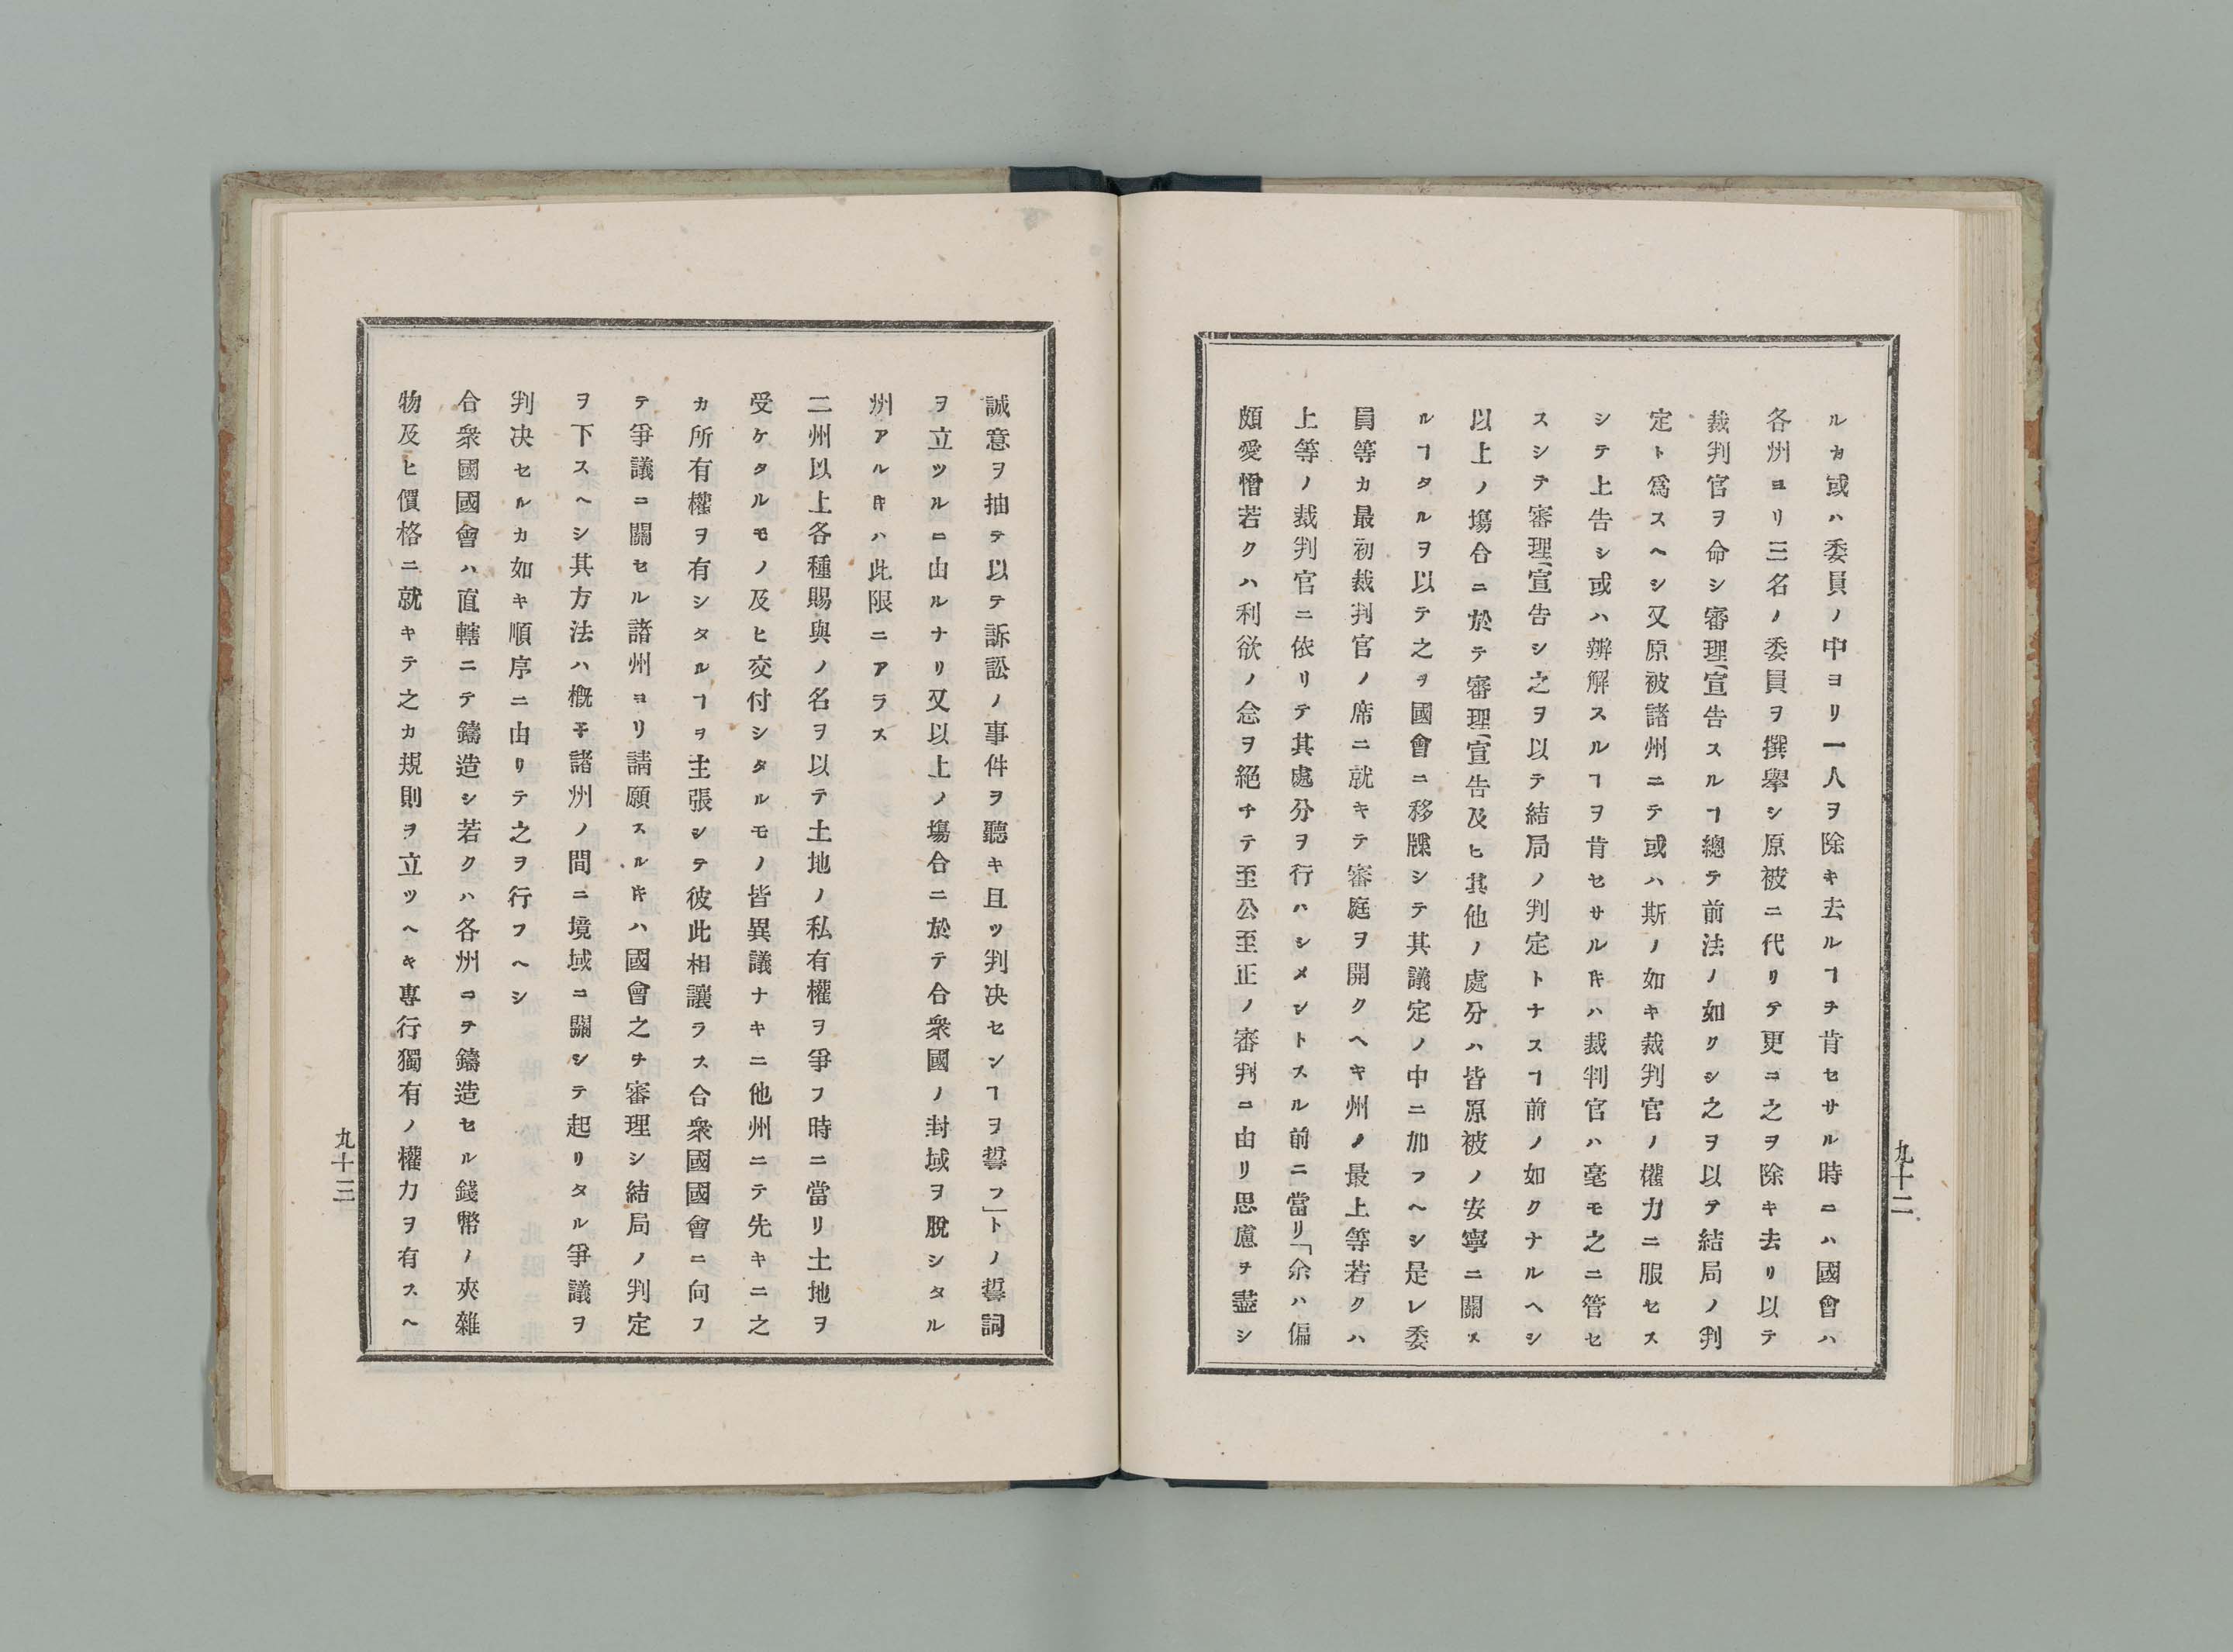 ルカ或ハ委員ノ中ヨリ一人ヲ除キ去ルヿヲ肯セサル時ニハ國會ハ
各州ヨリ三名ノ委員ヲ撰擧シ原被ニ代リテ更ニ之ヲ除キ去リ以テ
裁判官ヲ命シ審理宣告スルヿ總テ前法ノ如クシ之ヲ以テ結局ノ判
定ト爲スヘシ又原被諸州ニテ或ハ斯ノ如キ裁判官ノ權力ニ服セス
シテ上告シ或ハ辨解スルヿヲ肯セサル𪜈ハ裁判官ハ毫モ之ニ管セ
スシテ審理宣告シ之ヲ以テ結局ノ判定トナスヿ前ノ如クナルヘシ
以上ノ塲合ニ於テ審理宣告及ヒ其他ノ處分ハ皆原被ノ安寧ニ關ス
ルヿタルヲ以テ之ヲ國會ニ移牒シテ其議定ノ中ニ加フヘシ是レ委
員等カ最初裁判官ノ席ニ就キテ審庭ヲ開クヘキ州ノ最上等若クハ
上等ノ裁判官ニ依リテ其處分ヲ行ハシメントスル前ニ當リ「余ハ偏
頗愛憎若クハ利欲ノ念ヲ絕チテ至公至正ノ審判ニ由リ思慮ヲ盡シ
九十二
誠意ヲ抽テ以テ訴訟ノ事件ヲ聽キ且ツ判决センヿヲ誓フ」トノ誓詞
ヲ立ツルニ由ルナリ又以上ノ塲合ニ於テ合衆國ノ封域ヲ脫シタル
州アル𪜈ハ此限ニアラス
二州以上各種賜與ノ名ヲ以テ土地ノ私有權ヲ爭フ時ニ當リ土地ヲ
受ケタルモノ及ヒ交付シタルモノ皆異議ナキニ他州ニテ先キニ之
カ所有權ヲ有シタルヿヲ主張シテ彼此相讓ラス合衆國國會ニ向フ
テ爭議ニ關セル諸州ヨリ請願スル𪜈ハ國會之ヲ審理シ結局ノ判定
ヲ下スヘシ其方法ハ槪子諸州ノ間ニ境域ニ關シテ起リタル爭議ヲ
判决セルカ如キ順序ニ由リテ之ヲ行フヘシ
合衆國國會ハ直轄ニテ鑄造シ若クハ各州ニテ鑄造セル錢幣ノ夾雜
物及ヒ價格ニ就キテ之カ規則ヲ立ツヘキ專行獨有ノ權力ヲ有スヘ
九十三